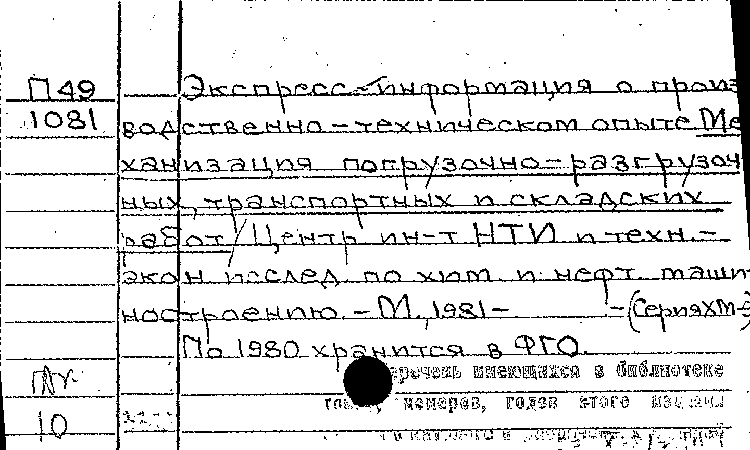 П49 Экспресс-информация о произ
1081 водственно-техническом опыте Ме
ханизация погрузочно-разгрузоч
ных, транспортных и складских
работ/Центр ин-т НТИ и техн.-
экон исслед по хим и нефт маши
ностроению. - М, 1981 - - (Серия ХМ-9
По 1980 хранится в ФГО.
перечень имеющихся в библиотеке
томов, номеров, годов этого издания
10